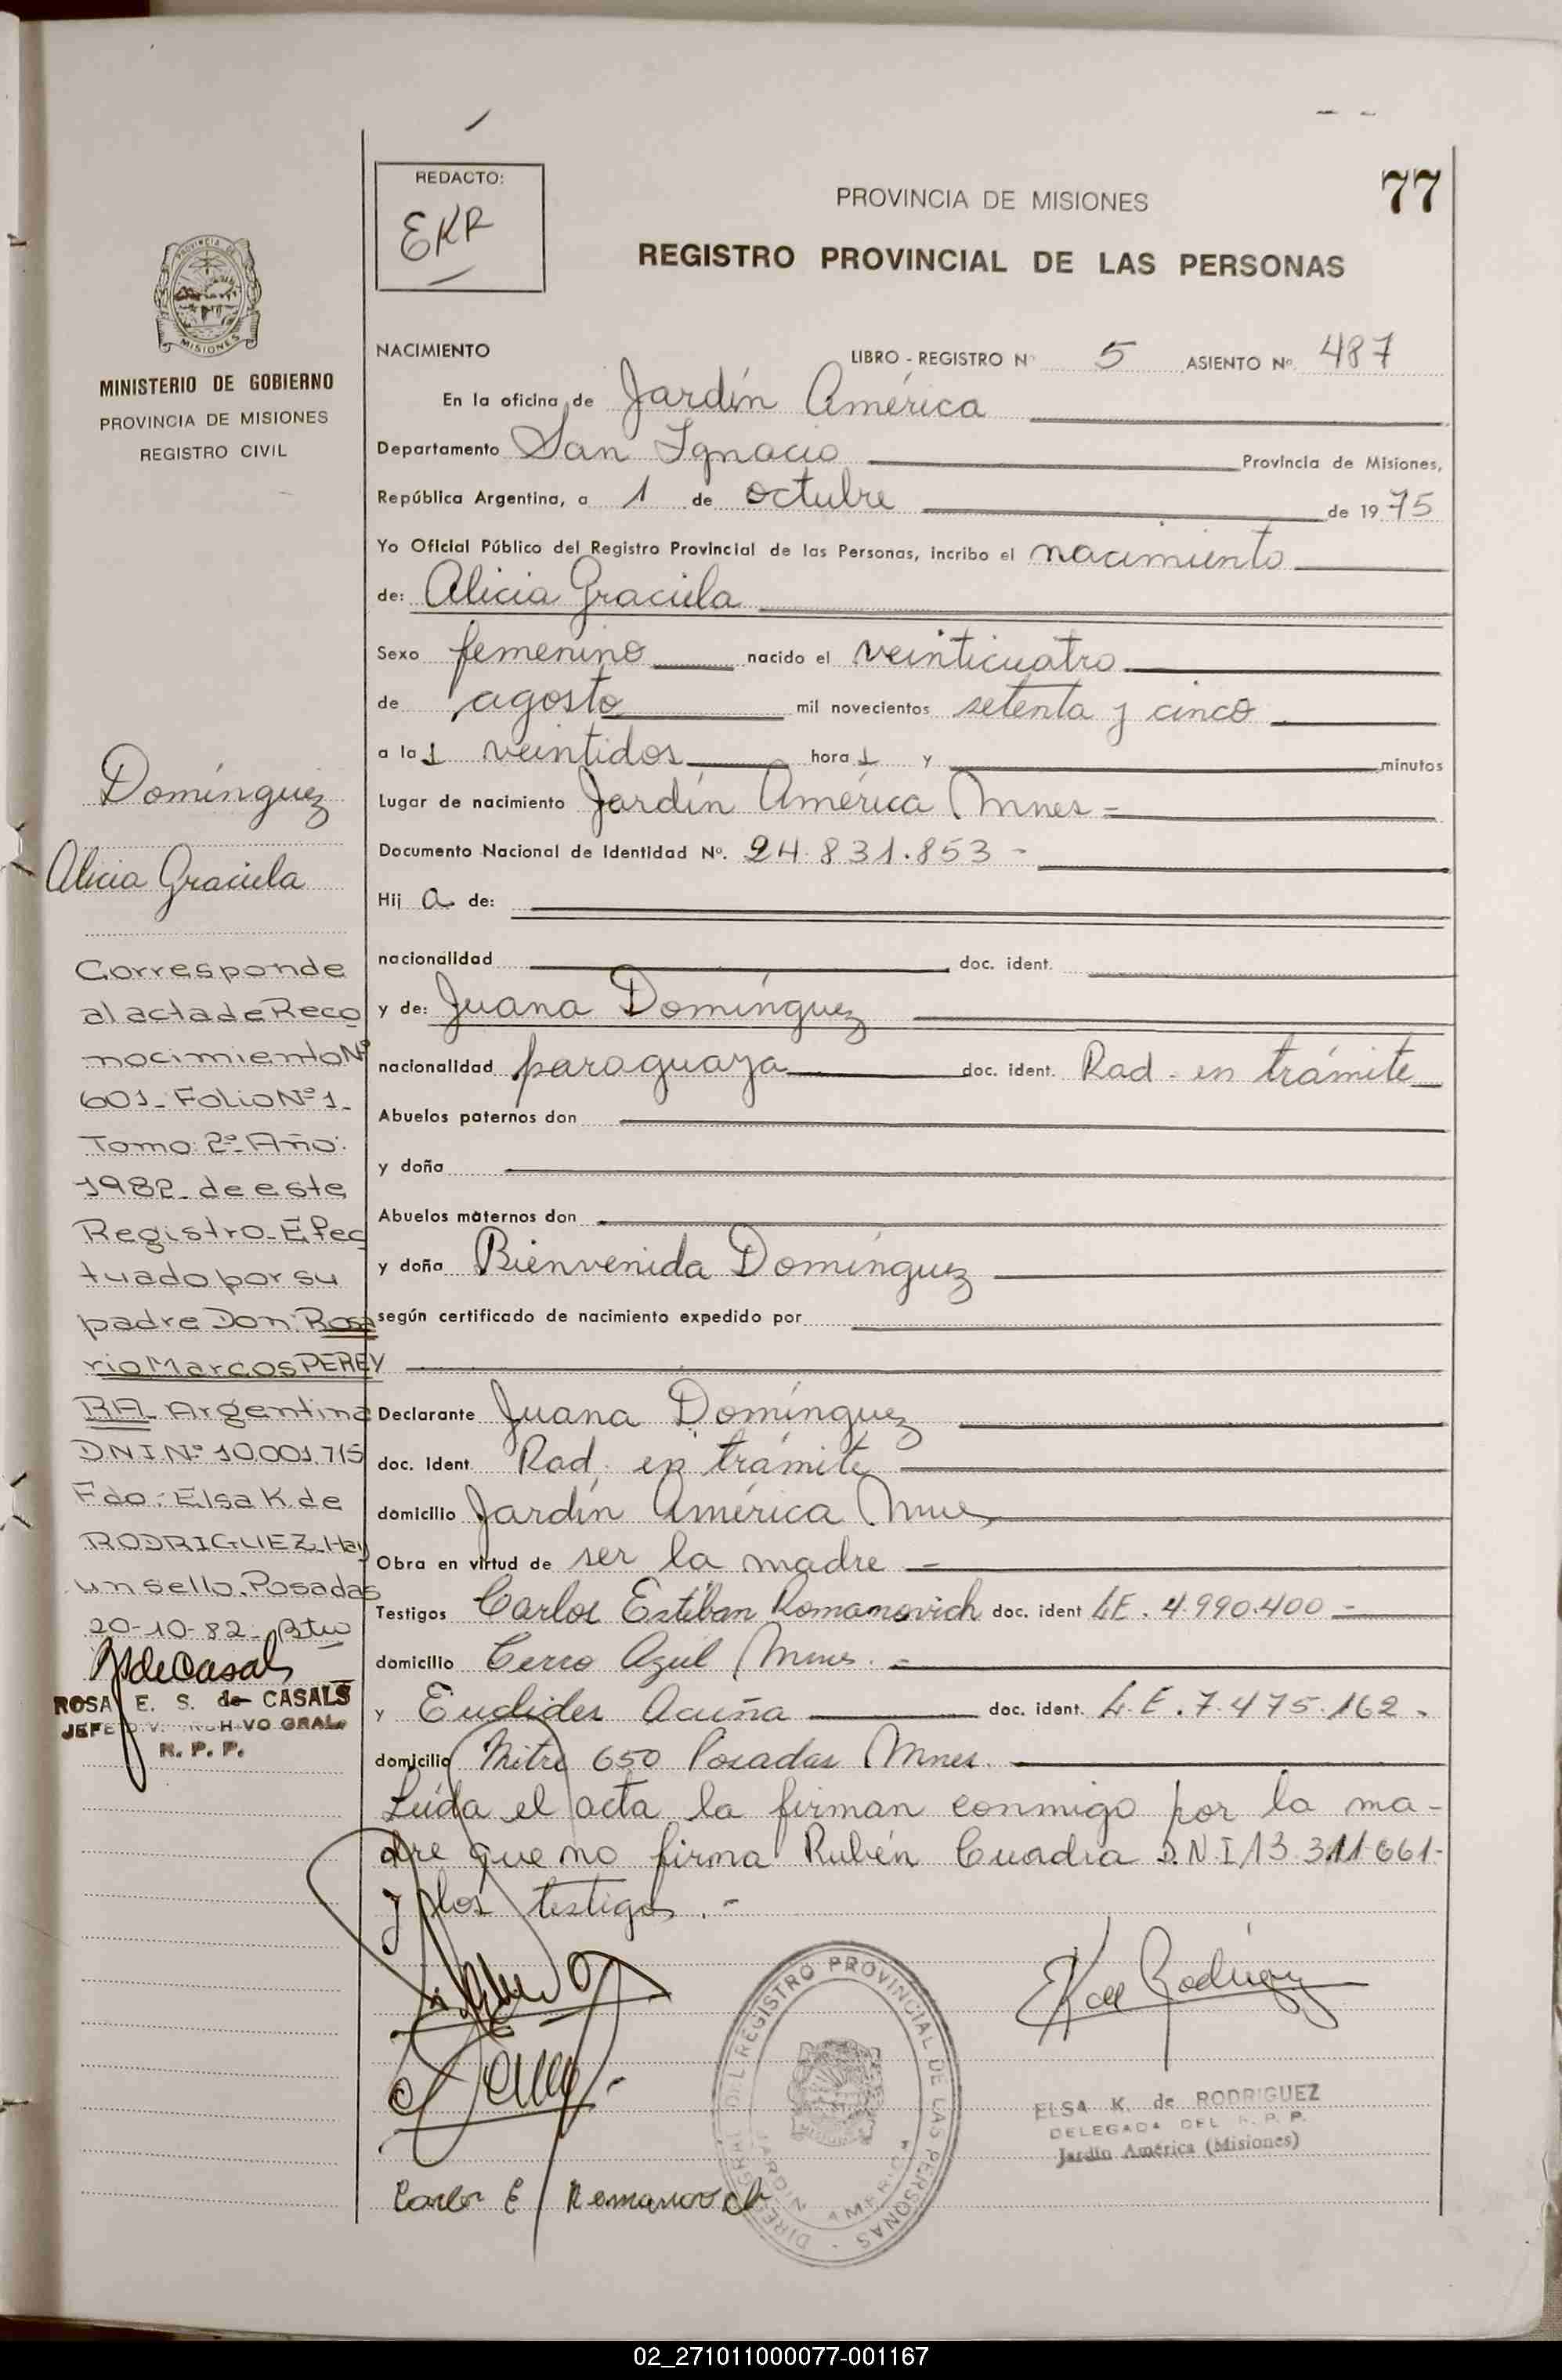 REDACTO:
EKR
PROVINCIA DE MISIONES
77
REGISTRO PROVINCIAL DE LAS PERSONAS
MISIONES
MINISTERIO DE GOBIERNO
PROVINCIA DE MISIONES
REGISTRO CIVIL
NACIMIENTO LIBRO - REGISTRO Nº 5 ASIENTO Nº. 487
En la oficina de Jardín América
Departamento San Ignacio Provincia de Misiones,
República Argentina, a 1 de octubre de 1975
Yo Oficial Público del Registro Provincial de las Personas, incribo el nacimiento
de: Alicia Graciela
Sexo femenino nacido el veinticuatro
de agosto mil novecientos setenta y cinco
a la s veintidos hora s y minutos
Lugar de nacimiento Jardín América Mnes -
Documento Nacional de Identidad Nº. 24.831.853 -
Hij a de:
nacionalidad doc. ident.
y de: Juana Domínguez
nacionalidad paraguaya doc. ident. Rad. en trámite
Abuelos paternos don
y doña
Abuelos maternos don
y doña Bienvenida Domínguez
según certificado de nacimiento expedido por
Declarante Juana Domínguez
doc. ident. Rad. en trámite
domicilio Jardín América Mnes
Obra en virtud de ser la madre -
Testigos Carlos Esteban Romanovich doc. ident LE. 4.990.400 -
domicilio Cerro Azul Mnes. -
y Euclides Acuña doc. ident. L.E. 7.475.162.
domicilio Mitre 650 Posadas Mnes.
Leída el acta la firman conmigo por la ma-
dre que no firma Rubén Cuadia D.N.I 13.311.661.
y los testigos. -
Domínguez
Alicia Graciela
Corresponde
al acta de Reco
nocimiento Nº
601- Folio Nº 1-
Tomo: 2º- Año:
1982- de este
Registro- Efec
tuado por su
padre Don: Rosa
rio Marcos PEREY
RA- Argentina
D.N.I. Nº 10.001.715
Fdo: Elsa K. de
RODRIGUEZ. Hay
un sello. Posadas
20-10-82-
ROSA E. S. de CASALS
R. P. P.
Carlos E Romanovich
REGISTRO PROVINCIAL DE LAS PERSONAS
JARDIN AMERICA
ELSA K. de RODRIGUEZ
DELEGADA DEL R. P. P.
Jardín América (Misiones)
02_271011000077-001167